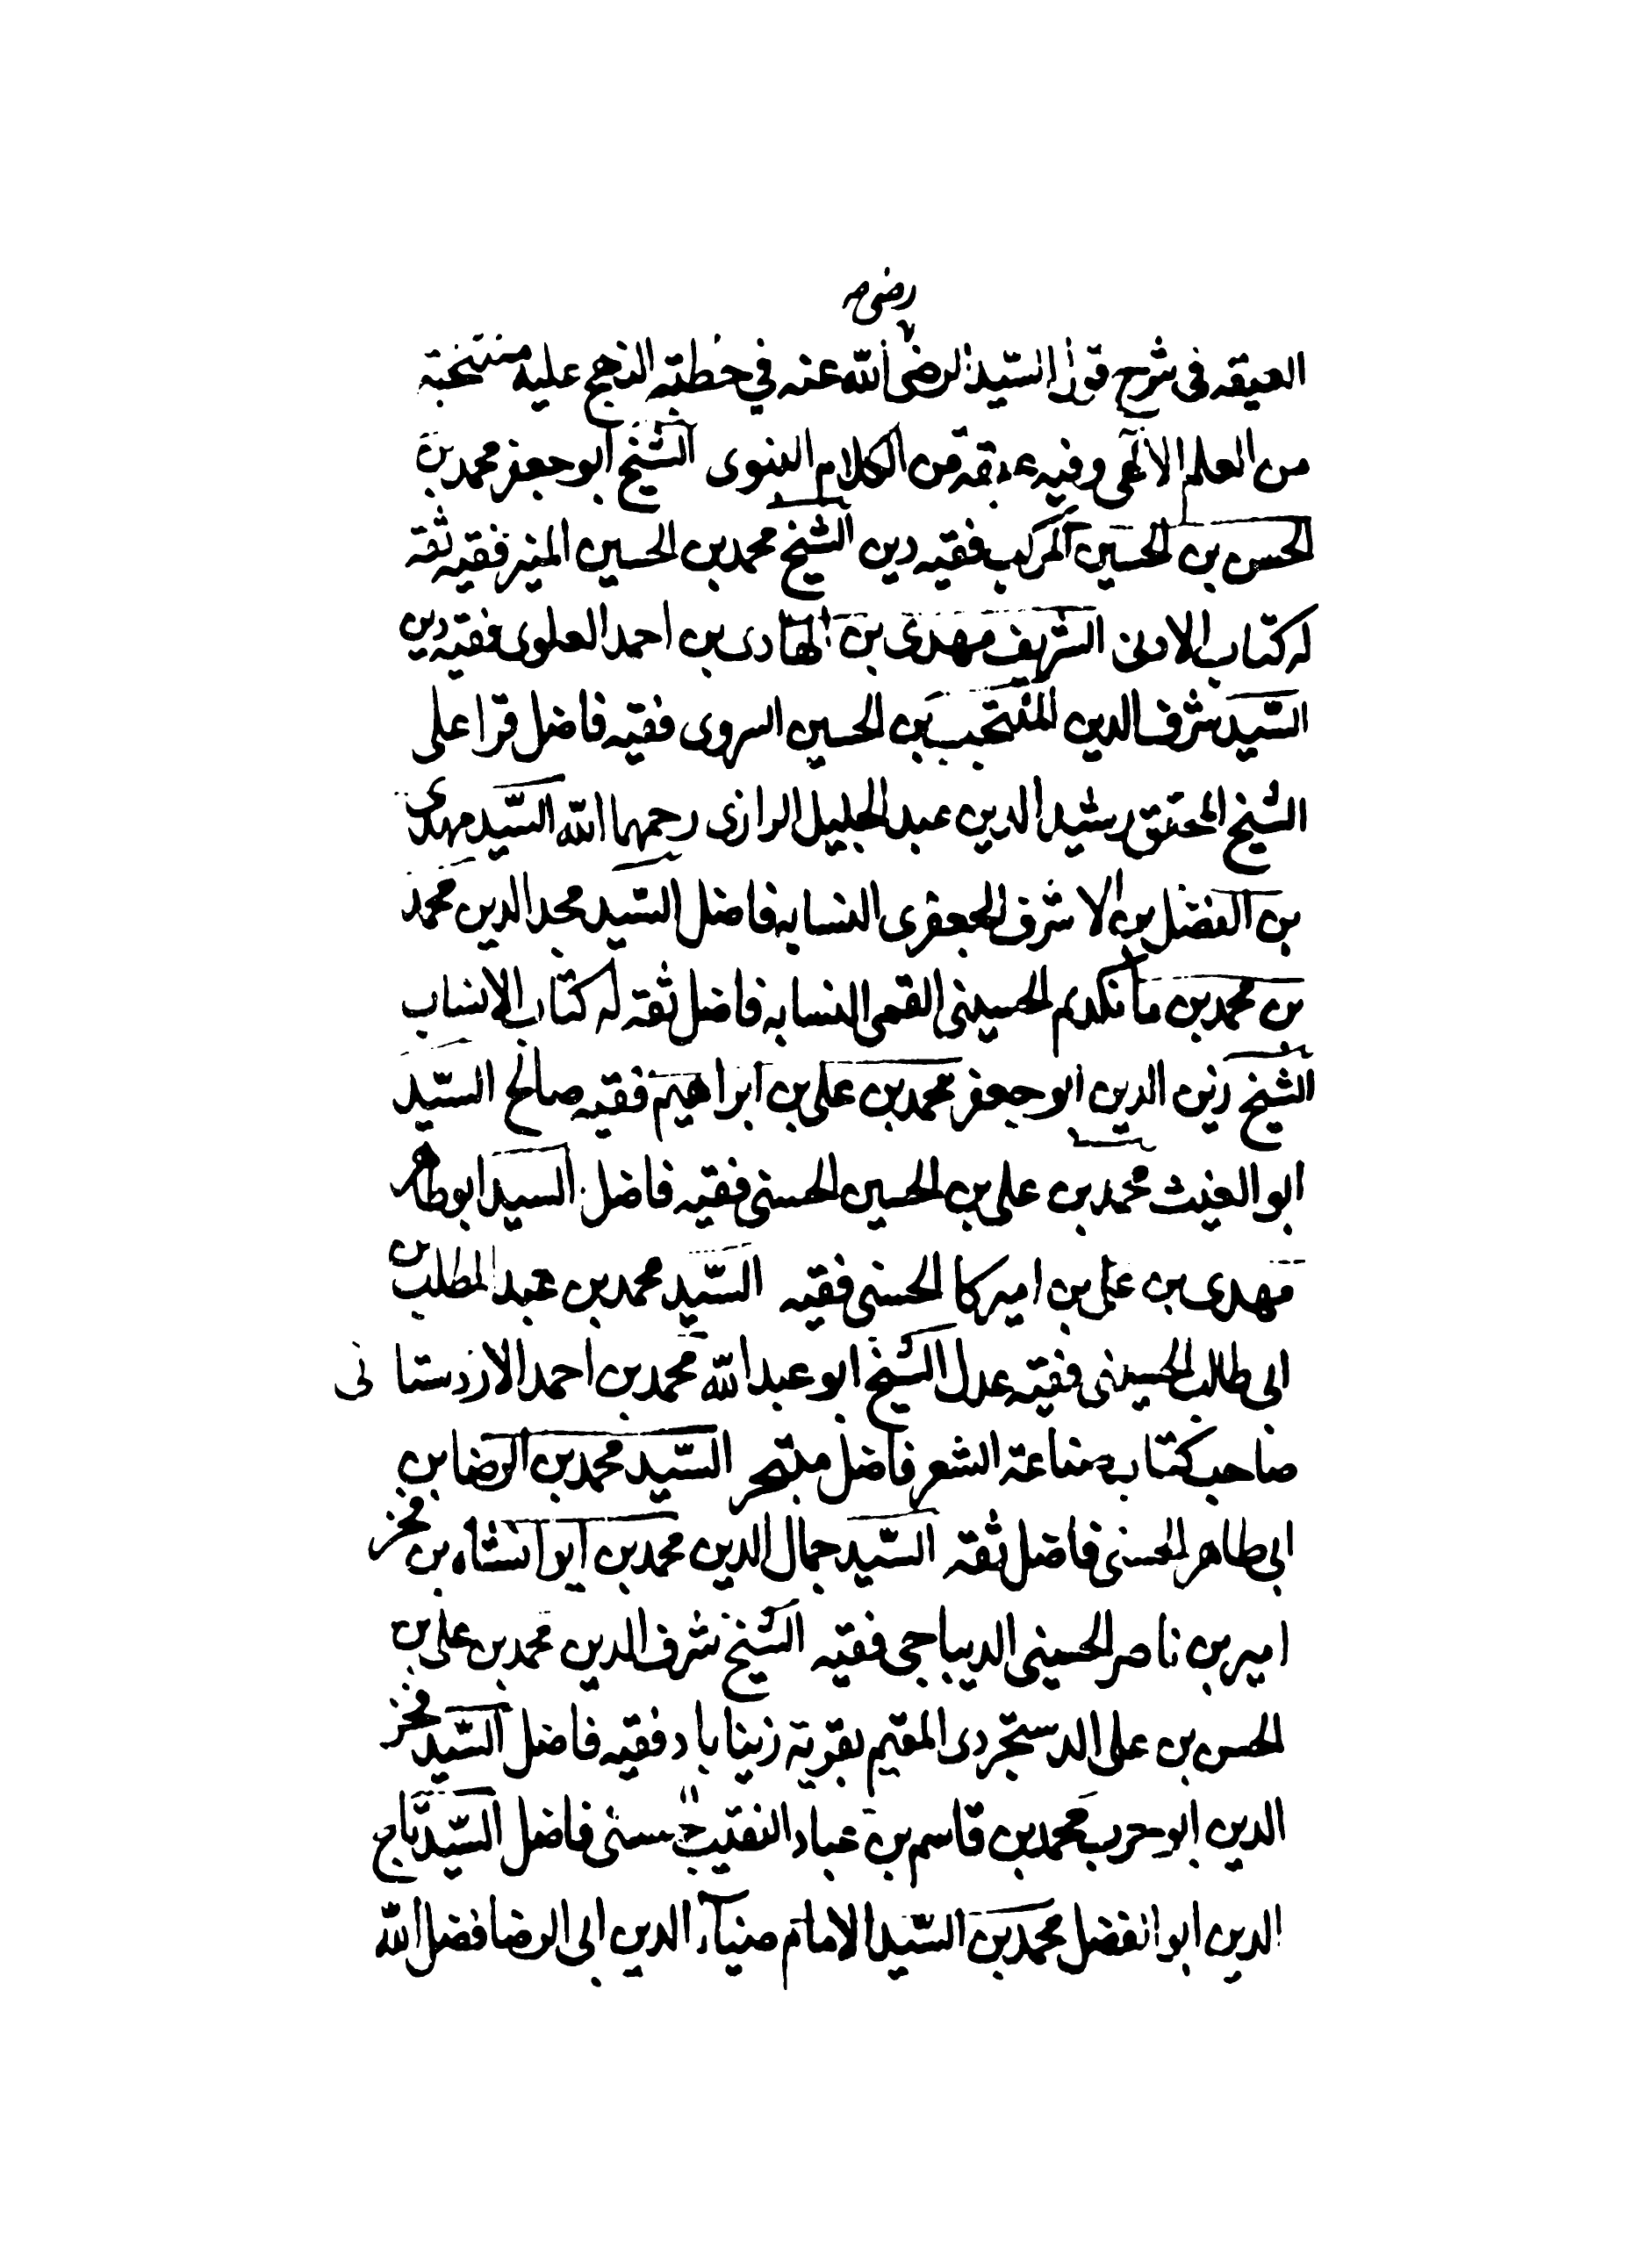 رضی
العبقه فی شرح قول السیّد الرضی الله عنه في خطبته النهج علیه منتخبة
من العلم الالٰهی وفیه عبقه من الکلام النبوی الشیخ ابوجعفر محمد بن
الحسن بن الحسین المرکب فقیه دین الشیخ محمد بن الحسین المنیر فقیه ثقه
له کتاب الادنی الشریف مهدی بن الهادی بن احمد العلوی فقیه دین
السیّد شرف الدین المنتجب بن الحسین السروی فقیه فاضل قرا علی
الشیخ المحقق رشید الدین عبد الجلیل الرازی رحمهما الله السیّد مهدی
بن الفضل بن الاشرف الجعفری النسابه فاضل السیّد مجد الدین محمد
بن محمد بن مانکدیم الحسینی القمی النسابه فاضل ثقه له کتاب الانساب
الشیخ زین الدین ابوجعفر محمد بن علی بن ابراهیم فقیه صالح السیّد
ابو الغیث محمد بن علی بن الحسین الحسنی فقیه فاضل السید ابوطاهر
مهدی بن علی بن امیرکا الحسنی فقیه السیّد محمد بن عبد المطلب بن
ابی طالب الحسینی فقیه عدل الشیخ ابو عبد الله محمد بن احمد الاردستانی
صاحب کتاب صناعة الشعر فاضل متبحر السیّد محمد بن الرضا بن
ابی طاهر الحسنی فاضل ثقه السیّد جمال الدین محمد بن ایرانشاه بن فخر
امیر بن ناصر الحسینی الدیباجی فقیه الشیخ شرف الدین محمد بن علی بن
الحسن بن علی الدستجردی المقیم بقریة زیناباد فقیه فاضل السیّد فخر
الدین ابوحرب محمد بن قاسم بن عباد النقیب حسنی فاضل السیّد تاج
الدین ابو الفضل محمد بن السیّد الامام ضیاء الدین ابی الرضا فضل الله